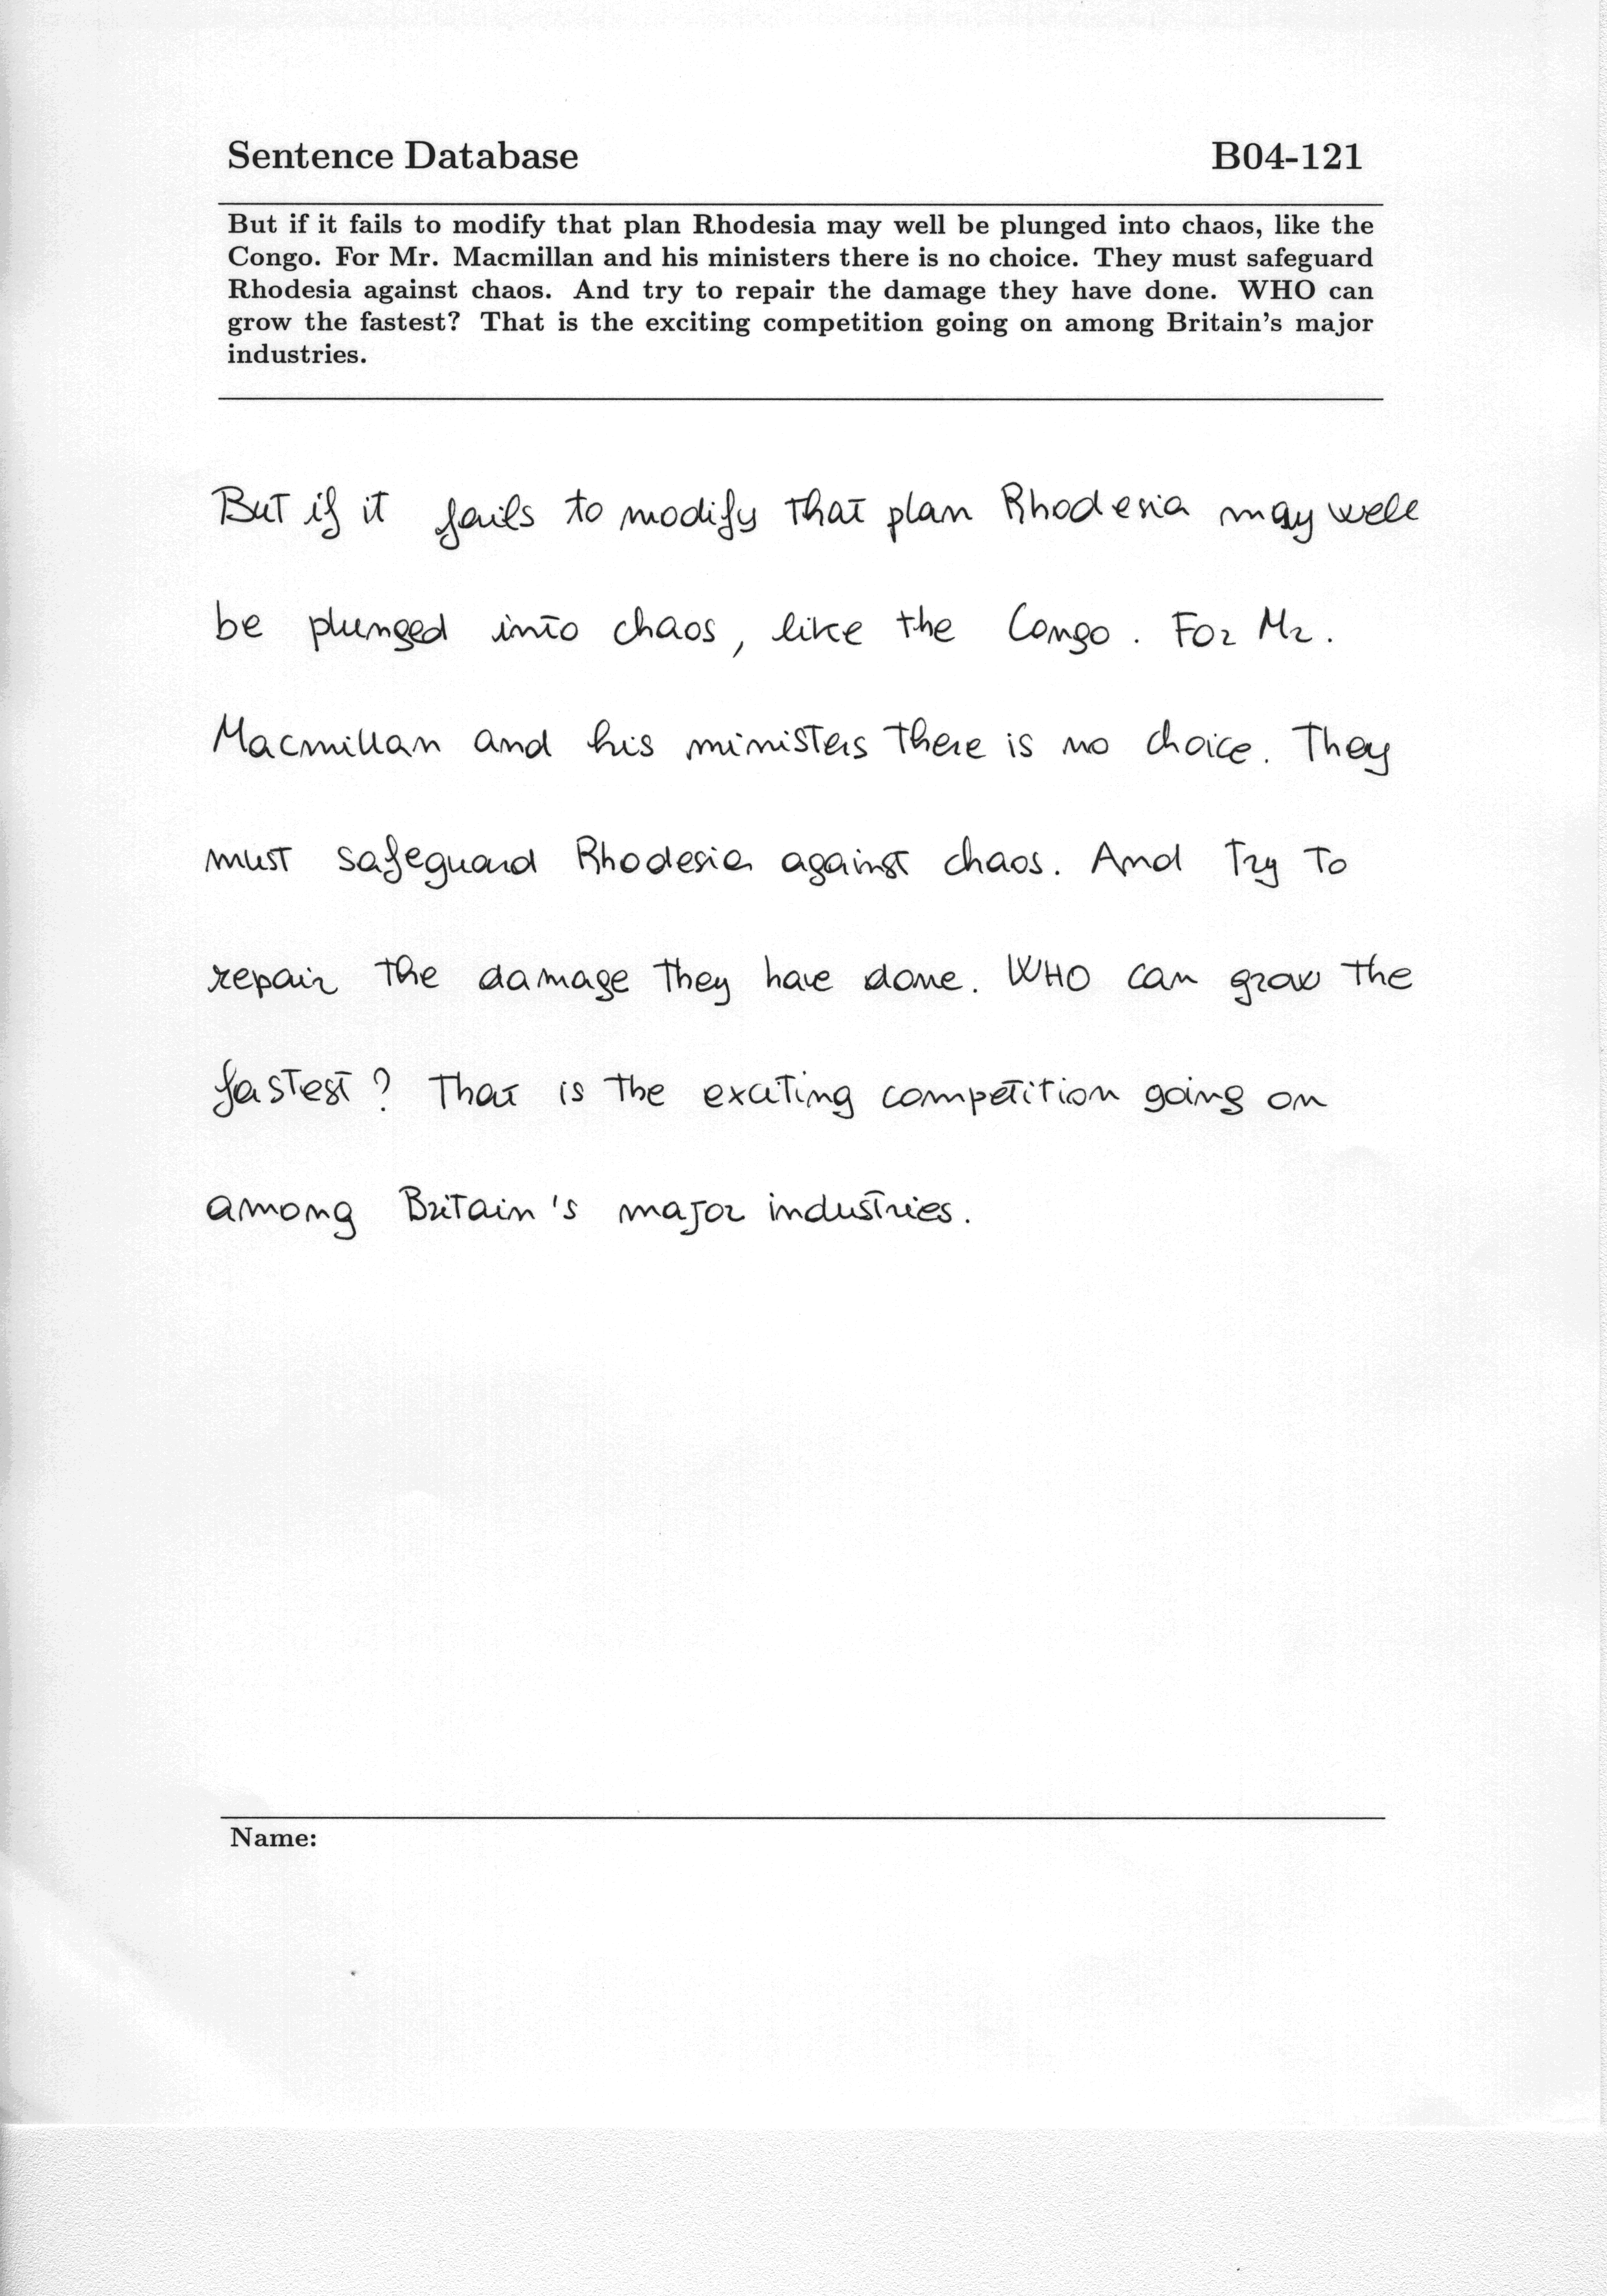 Sentence Database B04-121
But if it fails to modify that plan Rhodesia may well be plunged into chaos, like the
Congo. For Mr. Macmillan and his ministers there is no choice. They must safeguard
Rhodesia against chaos. And try to repair the damage they have done. WHO can
grow the fastest? That is the exciting competition going on among Britain's major
industries.
But if it fails to modify that plan Rhodesia may well
be plunged into chaos, like the Congo. For Mr.
Macmillan and his ministers there is no choice. They
must safeguard Rhodesia against chaos. And try to
repair the damage they have done. WHO can grow the
fastest? That is the exciting competition going on
among Britain's major industries.
Name: